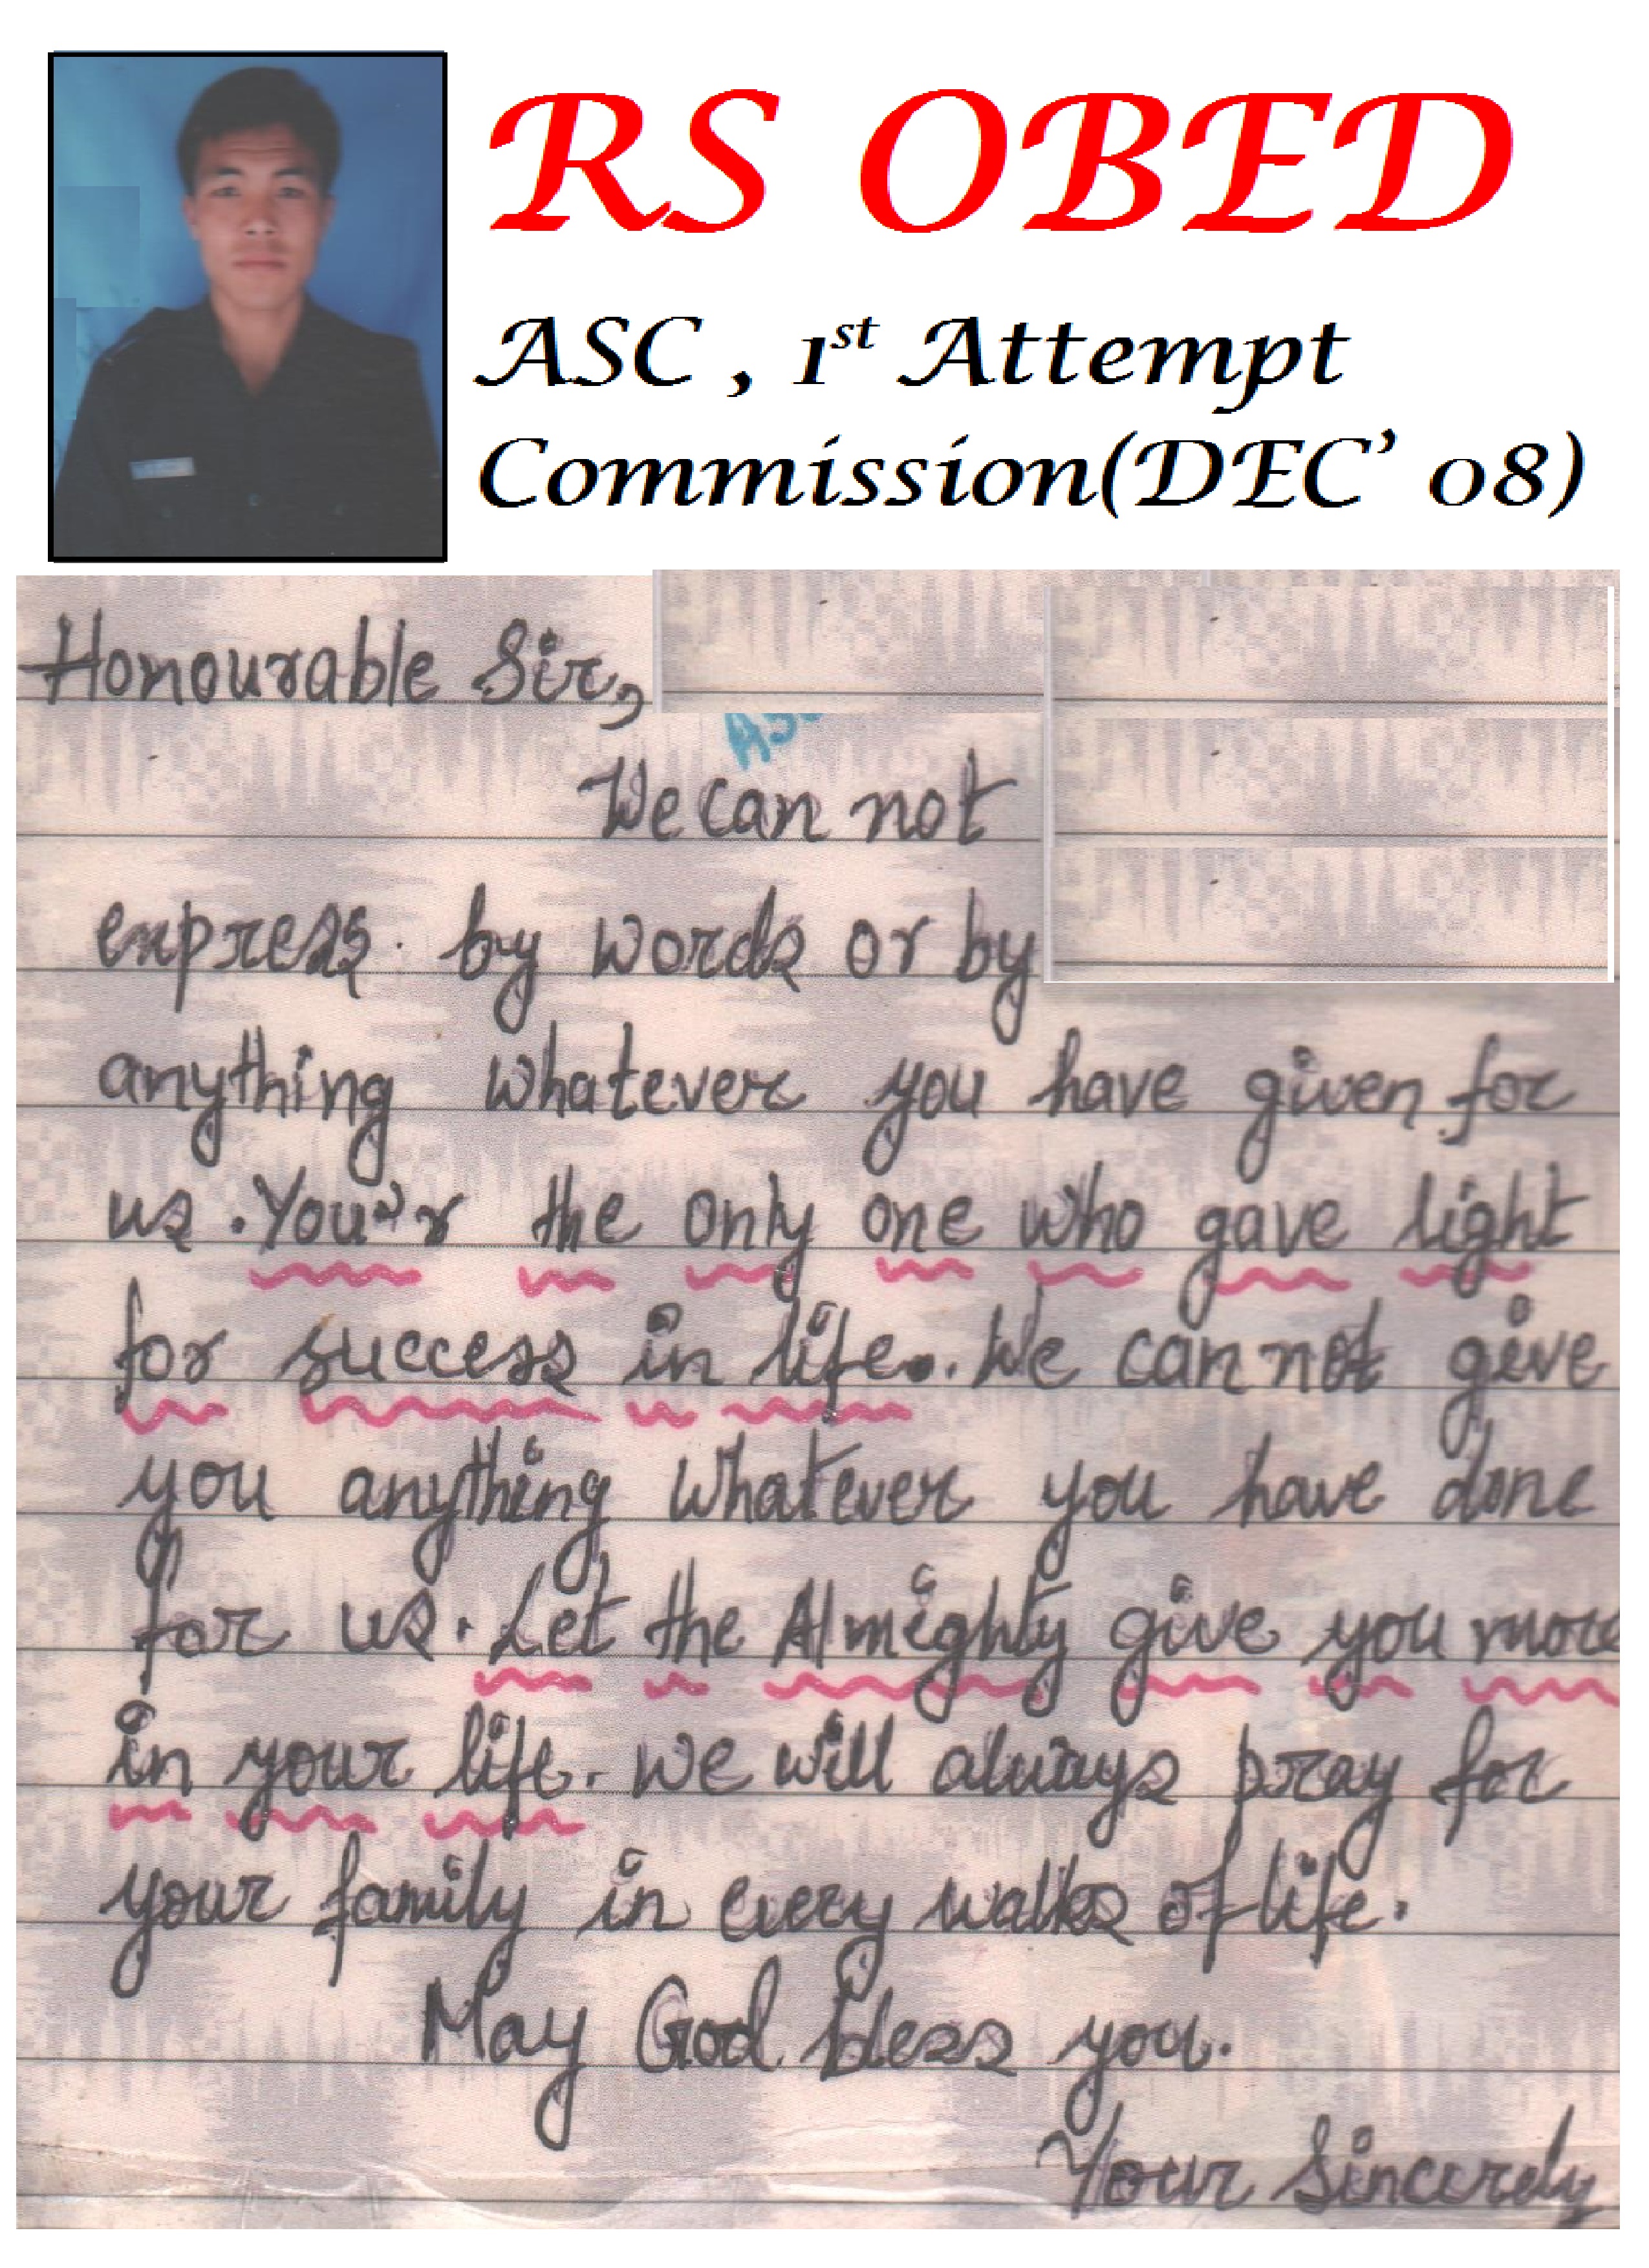 RS OBED
ASC , 1st Attempt
Commission(DEC’ 08)
Honourable Sir,
We can not
express. by words or by
anything whatever you have given for
us. You'r the only one who gave light
for success in life. We can not give
you anything whatever you have done
for us. Let the Almighty give you more
in your life. We will always pray for
your family in every walks of life.
May God bless you.
Your Sincerely